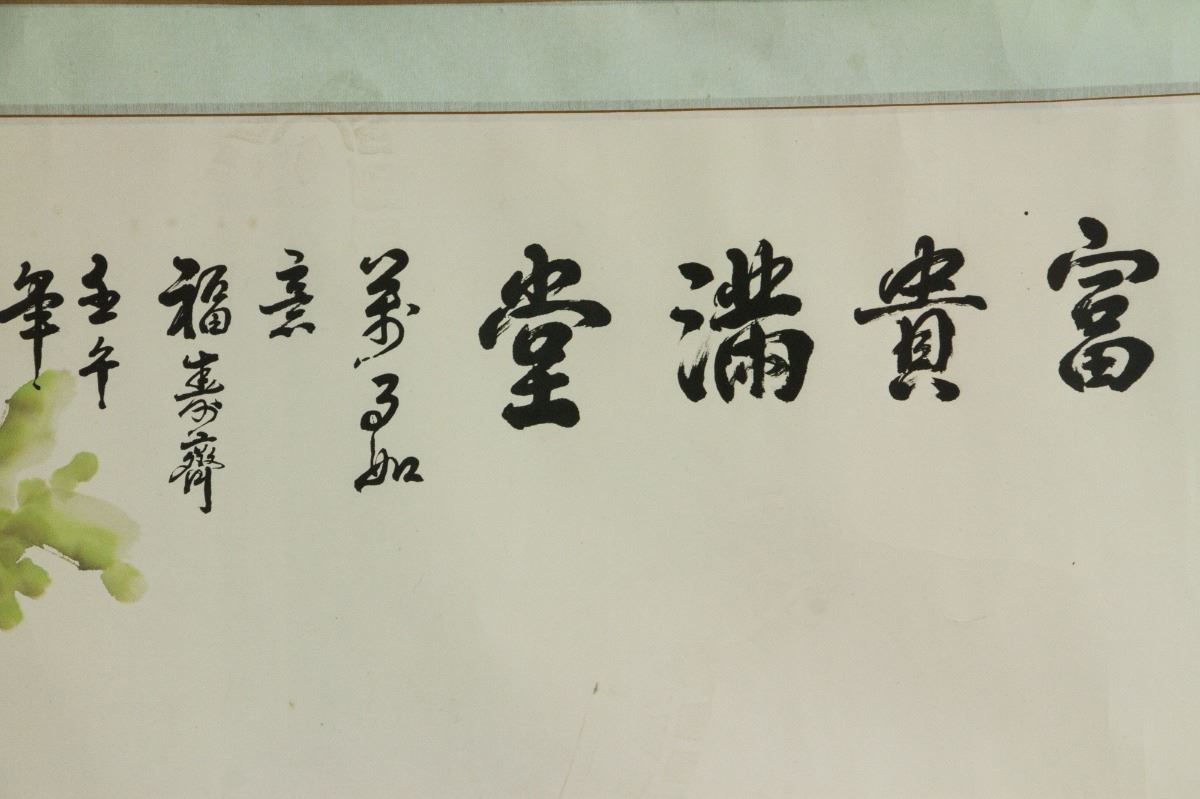 富貴滿堂
萬事如
意
福壽齊
壬午
年